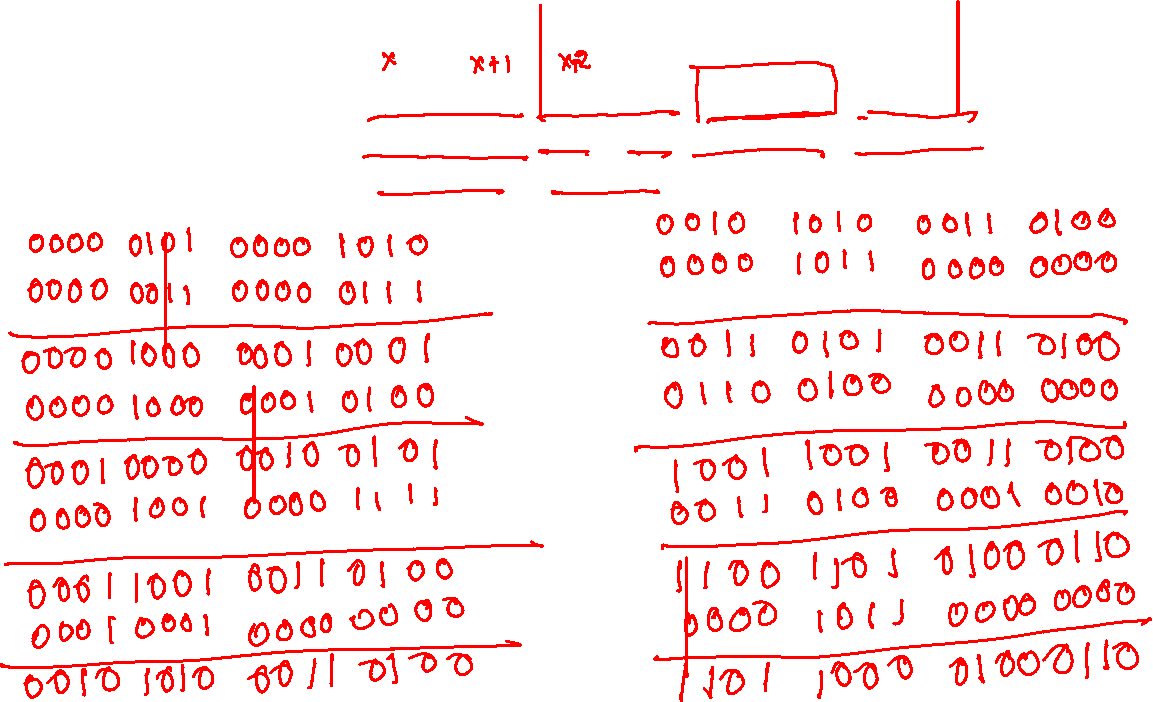 x x+1 x+2
0000 0101 0000 1010
0000 0011 0000 0111
0000 1000 0001 0001
0000 1000 0001 0100
0001 0000 0010 0101
0000 1001 0000 1111
0001 1001 0011 0100
0001 0001 0000 0000
0010 1010 0011 0100
0010 1010 0011 0100
0000 1011 0000 0000
0011 0101 0011 0100
0110 0100 0000 0000
1001 1001 0011 0100
0011 0100 0001 0010
1100 1101 0100 0110
0000 1011 0000 0000
1101 1000 01000110